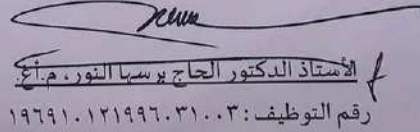 الأستاذ الدكتور الحاج برسها النور، م.أغ.
رقم التوظيف: ١٩٦٩١٠١٢١٩٩٦٠٣١٠٠٣